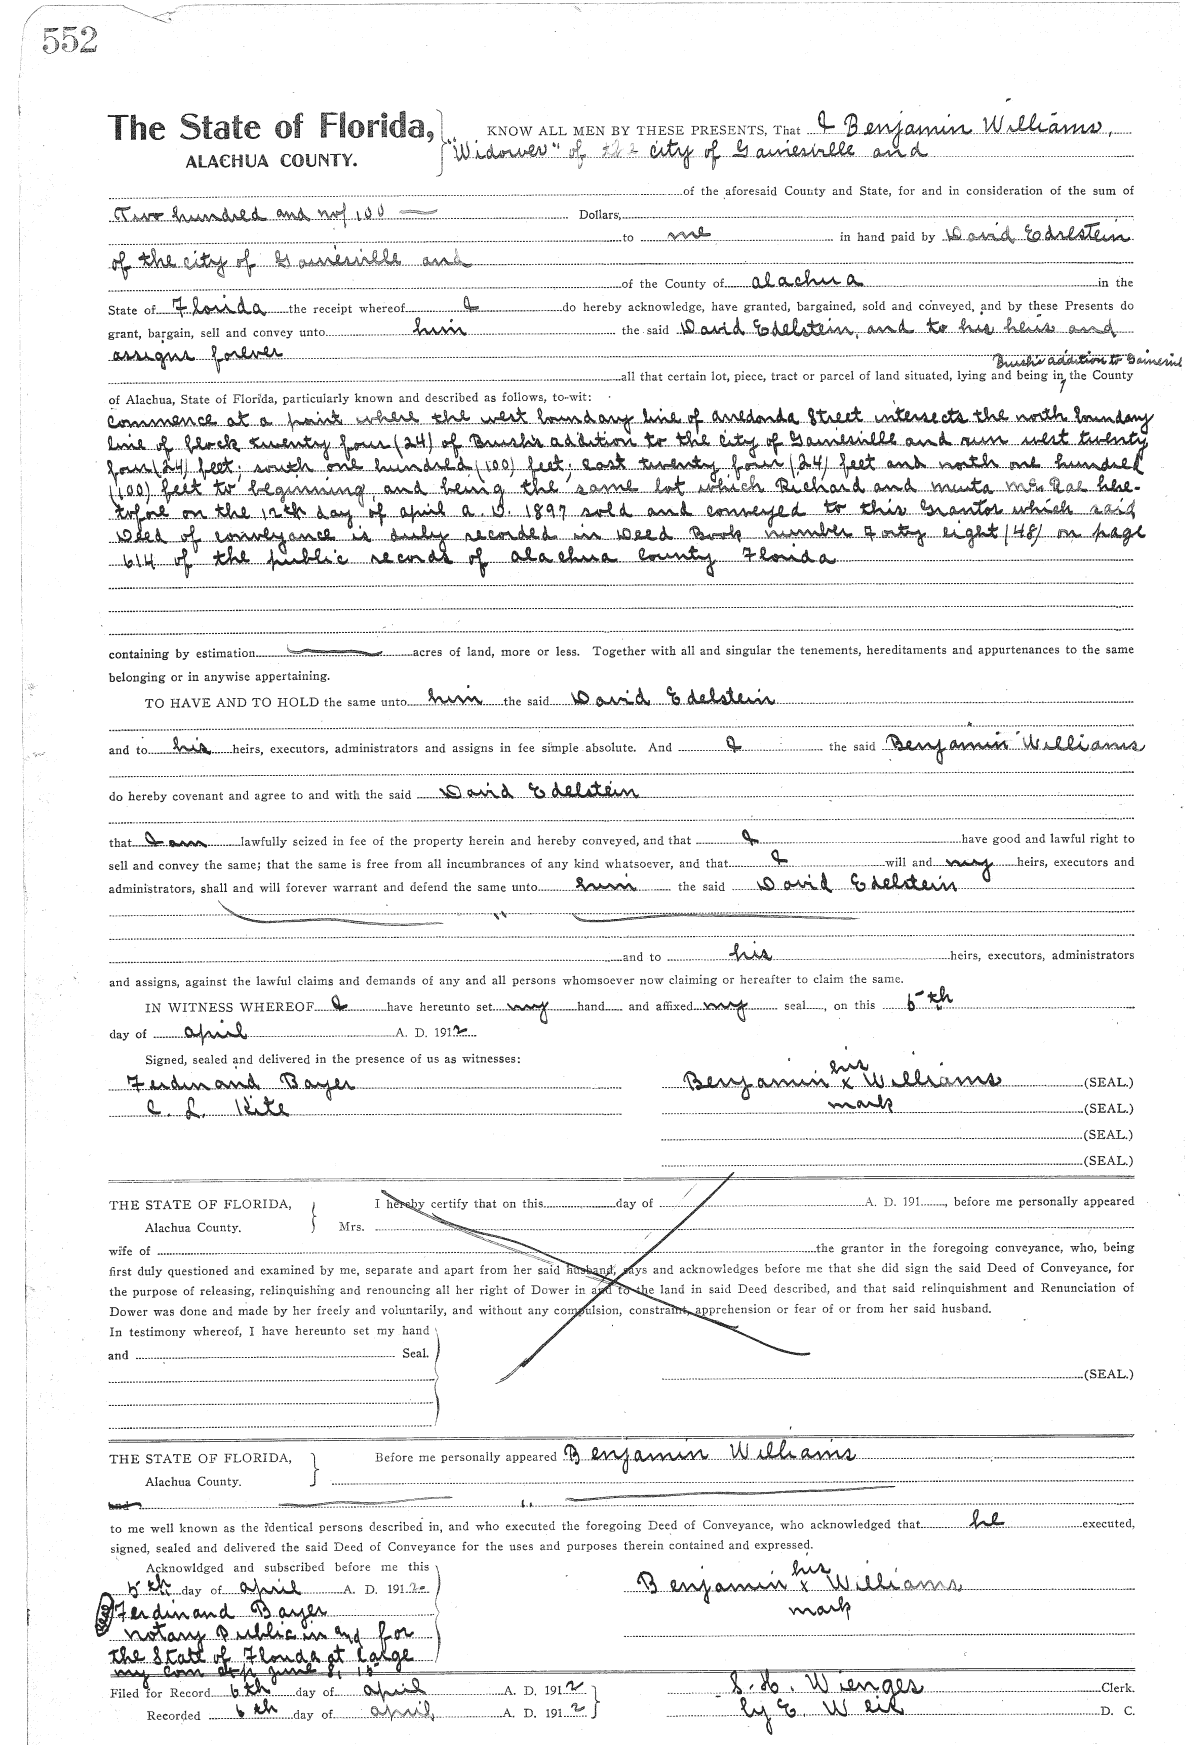 552
The State of Florida, KNOW ALL MEN BY THESE PRESENTS, That I Benjamin Williams,
ALACHUA COUNTY. "Widower" of the city of Gainesville and
of the aforesaid County and State, for and in consideration of the sum of
Two hundred and no/100 Dollars,
to me in hand paid by David Edelstein
of the city of Gainesville and
of the County of Alachua in the
State of Florida the receipt whereof I do hereby acknowledge, have granted, bargained, sold and conveyed, and by these Presents do
grant, bargain, sell and convey unto him the said David Edelstein, and to his heirs and
assigns forever
Brush's addition to Gainesvil
all that certain lot, piece, tract or parcel of land situated, lying and being in, the County
of Alachua, State of Florida, particularly known and described as follows, to-wit:
Commence at a point where the west boundary line of Arredonda Street intersects the north boundary
line of block twenty four (24) of Brush's addition to the city of Gainesville and run west twenty
four (24) feet; south one hundred (100) feet; east twenty four (24) feet and north one hundred
(100) feet to beginning, and being the same lot which Richard and Menta McRae here-
tofore on the 12th day of April A. D. 1897 sold and conveyed to this Grantor which said
Deed of conveyance is duly recorded in Deed Book number Forty eight (48) on page
614 of the public records of Alachua County Florida
containing by estimation acres of land, more or less. Together with all and singular the tenements, hereditaments and appurtenances to the same
belonging or in anywise appertaining.
TO HAVE AND TO HOLD the same unto him the said David Edelstein
and to his heirs, executors, administrators and assigns in fee simple absolute. And I the said Benjamin Williams
do hereby covenant and agree to and with the said David Edelstein
that I am lawfully seized in fee of the property herein and hereby conveyed, and that I have good and lawful right to
sell and convey the same; that the same is free from all incumbrances of any kind whatsoever, and that I will and my heirs, executors and
administrators, shall and will forever warrant and defend the same unto him the said David Edelstein
"
and to his heirs, executors, administrators
and assigns, against the lawful claims and demands of any and all persons whomsoever now claiming or hereafter to claim the same.
IN WITNESS WHEREOF I have hereunto set my hand and affixed my seal, on this 5th
day of April A. D. 1912
Signed, sealed and delivered in the presence of us as witnesses:
his
Ferdinand Bayer Benjamin x Williams (SEAL.)
C. L. Kite mark (SEAL.)
(SEAL.)
(SEAL.)
THE STATE OF FLORIDA, I hereby certify that on this day of A. D. 191 , before me personally appeared
Alachua County. Mrs.
wife of the grantor in the foregoing conveyance, who, being
first duly questioned and examined by me, separate and apart from her said husband, says and acknowledges before me that she did sign the said Deed of Conveyance, for
the purpose of releasing, relinquishing and renouncing all her right of Dower in and to the land in said Deed described, and that said relinquishment and Renunciation of
Dower was done and made by her freely and voluntarily, and without any compulsion, constraint, apprehension or fear of or from her said husband.
In testimony whereof, I have hereunto set my hand
and Seal.
(SEAL.)
THE STATE OF FLORIDA, Before me personally appeared Benjamin Williams
Alachua County.
and "
to me well known as the identical persons described in, and who executed the foregoing Deed of Conveyance, who acknowledged that he executed,
signed, sealed and delivered the said Deed of Conveyance for the uses and purposes therein contained and expressed.
Acknowldged and subscribed before me this his
5th day of April A. D. 1912 Benjamin x Williams
Ferdinand Bayer mark
Notary Public in and for
the State of Florida at large
my com exp June 8, 15
Filed for Record 6th day of April A. D. 1912 S. H. Wienges Clerk.
Recorded 6th day of April, A. D. 1912 by E. Weil D. C.